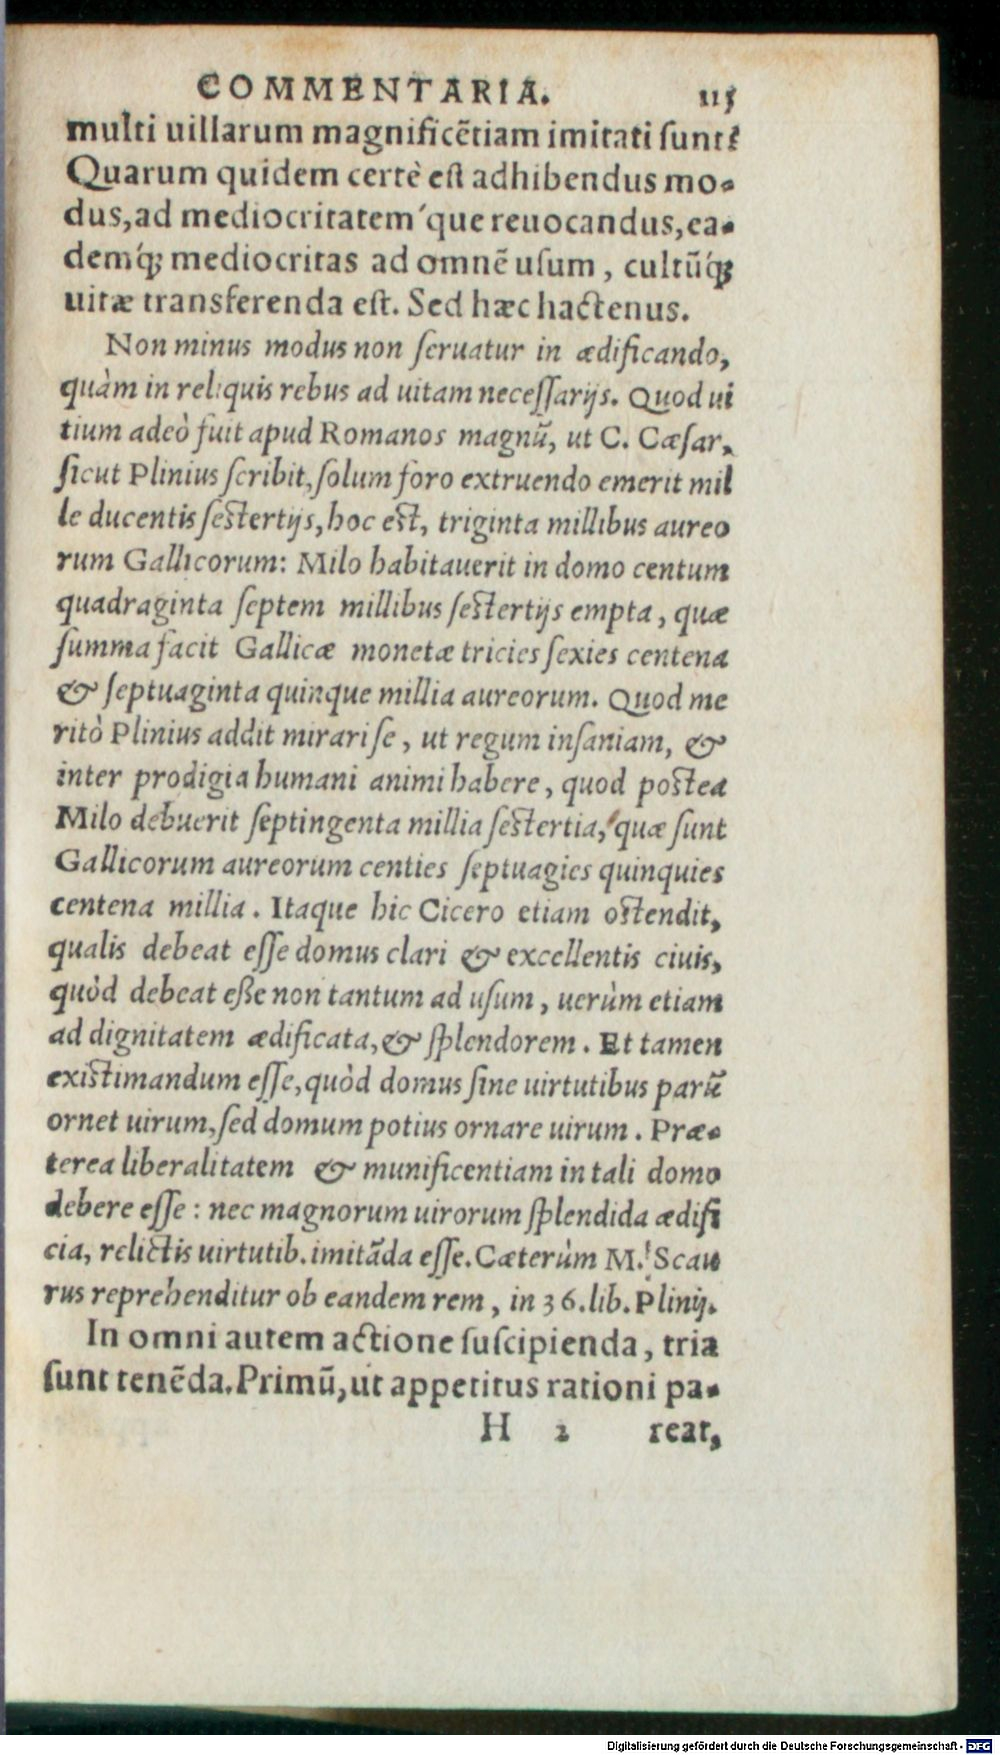 COMMENTARIA. 115
multi uillarum magnificẽtiam imitati ſunt?
Quarum quidem certè eſt adhibendus mo-
dus, ad mediocritatem´que reuocandus, ea-
demq́; mediocritas ad omnẽ uſum, cultũq́;
uitæ transferenda eſt. Sed hæc hactenus.
Non minus modus non ſeruatur in ædificando,
quàm in reliquis rebus ad uitam neceſſarijs. Quod ui
tium adeò fuit apud Romanos magnũ, ut C. Cæſar,
ſicut Plinius ſcribit, ſolum foro extruendo emerit mil
le ducentis ſeſtertijs, hoc eſt, triginta millibus aureo
rum Gallicorum: Milo habitauerit in domo centum
quadraginta ſeptem millibus ſeſtertijs empta, quæ
ſumma facit Gallicæ monetæ tricies ſexies centena
& ſeptuaginta quinque millia aureorum. Quod me
ritò Plinius addit mirari ſe, ut regum inſaniam, &
inter prodigia humani animi habere, quod poſtea
Milo debuerit ſeptingenta millia ſeſtertia, quæ ſunt
Gallicorum aureorum centies ſeptuagies quinquies
centena millia. Itaque hic Cicero etiam oſtendit,
qualis debeat eſſe domus clari & excellentis ciuis,
quòd debeat eße non tantum ad uſum, uerùm etiam
ad dignitatem ædificata, & ſplendorem. Et tamen
exiſtimandum eſſe, quòd domus ſine uirtutibus parũ
ornet uirum, ſed domum potius ornare uirum. Præ-
terea liberalitatem & munificentiam in tali domo
debere eſſe: nec magnorum uirorum ſplendida ædifi
cia, relictis uirtutib. imitãda eſſe. Cæterùm M. Scau
rus reprehenditur ob eandem rem, in 36. lib. Plinij.
In omni autem actione ſuſcipienda, tria
ſunt tenẽda. Primũ, ut appetitus rationi pa-
H 2 reat,
Digitalisierung gefördert durch die Deutsche Forschungsgemeinschaft - DFG